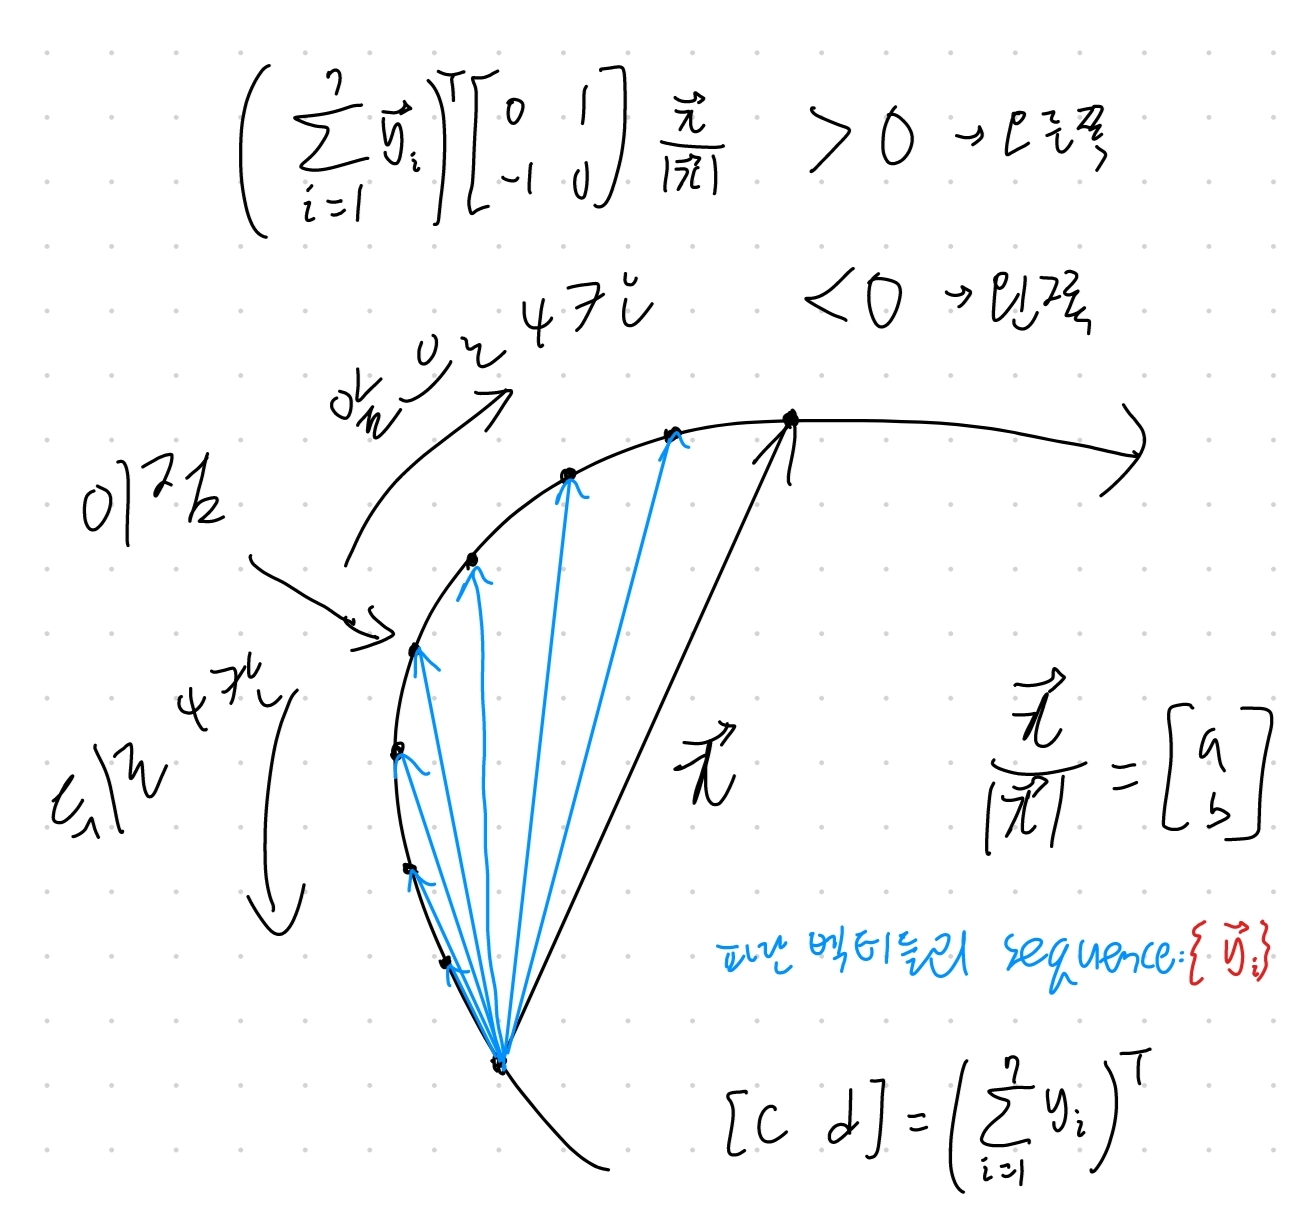 (∑_{i=1}^{n} \vec{y}_i)^T [0 1; -1 0] \vec{x}/|\vec{x}| > 0 → 오른쪽
< 0 → 왼쪽
앞으로 4구간
이 점
뒤로 4구간
\vec{x}
\vec{x}/|\vec{x}| = [a; b]
파란 벡터들의 sequence: { \vec{y}_i }
[c d] = (∑_{i=1}^{n} y_i)^T